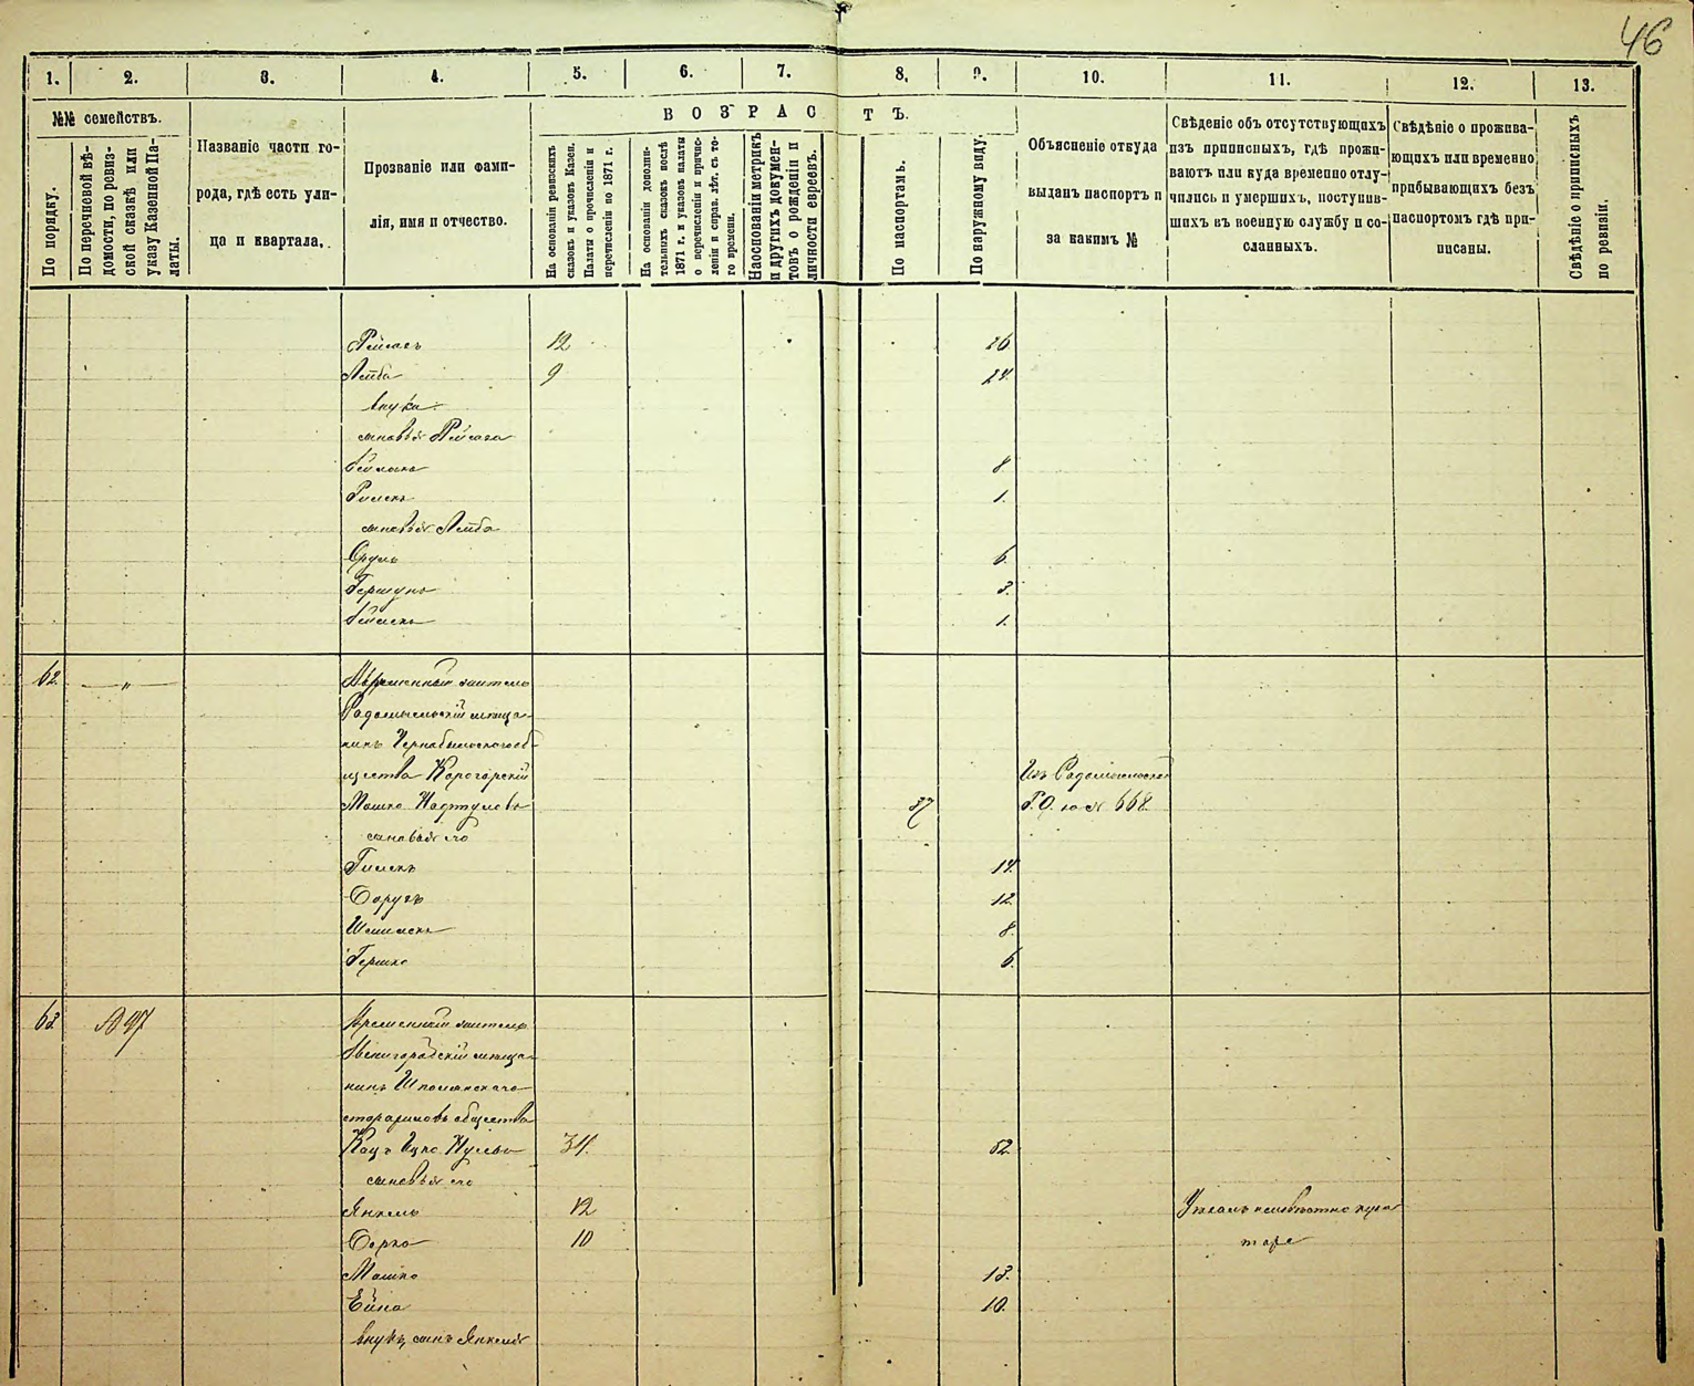 46
1. 2. 3. 4. 5. 6. 7. 8. 9. 10. 11. 12. 13.
№№ семействъ.
По порядку.
По перечневой вѣ-
домости, по ревиз-
ской сказкѣ или
указу Казенной Па-
латы.
Названіе части го-
рода, гдѣ есть ули-
ца и кварталa.
Прозваніе или фами-
лія, имя и отчество.
ВОЗРАСТЪ.
На основаніи ревизскихъ
сказокъ и указовъ Казен.
Палаты о причисленіи и
перечисленіи по 1871 г.
На основаніи дополни-
тельныхъ сказокъ послѣ
1871 г. и указовъ палаты
о перечисленіи и причис-
леніи и справ. лѣт. съ то-
го времени.
На основаніи метрикъ
и другихъ докумен-
товъ о рожденіи и
личности евреевъ.
По паспортамъ.
По наружному виду.
Объясненіе откуда
выданъ паспортъ и
за какимъ №
Свѣденіе объ отсутствующихъ
изъ приписныхъ, гдѣ прожи-
ваютъ или куда временно отлу-
чились и умершихъ, поступив-
шихъ въ военную службу и со-
сланныхъ.
Свѣдѣніе о прожива-
ющихъ или временно
прибывающихъ безъ
паспортовъ гдѣ при-
писаны.
Свѣдѣніе о приписныхъ
по ревизіи.
12 26
Лейба 9 24.
внуки
сыновья
8
1.
сыновья Лейба
Сруль 6.
Гершунъ 3.
1.
62. — " — Временный житель
Радомысльскій мѣща-
нинъ Чернобыльскаго об-
щества Корогорскій Изъ Радомысльской
Мошко Нафтулевъ 37 Г. О. 668.
сыновья его
14.
Борухъ 12
8.
Гершко 6.
63. № 97 Временный житель
Звенигородскій мѣща-
нинъ Шполянскаго
общества
Кацъ Ицко 34. 52.
сыновья его
Янкель 12 неизвѣстно куда
Берко 10 тоже
Мошко 13.
10.
внукъ, сынъ Янкеля